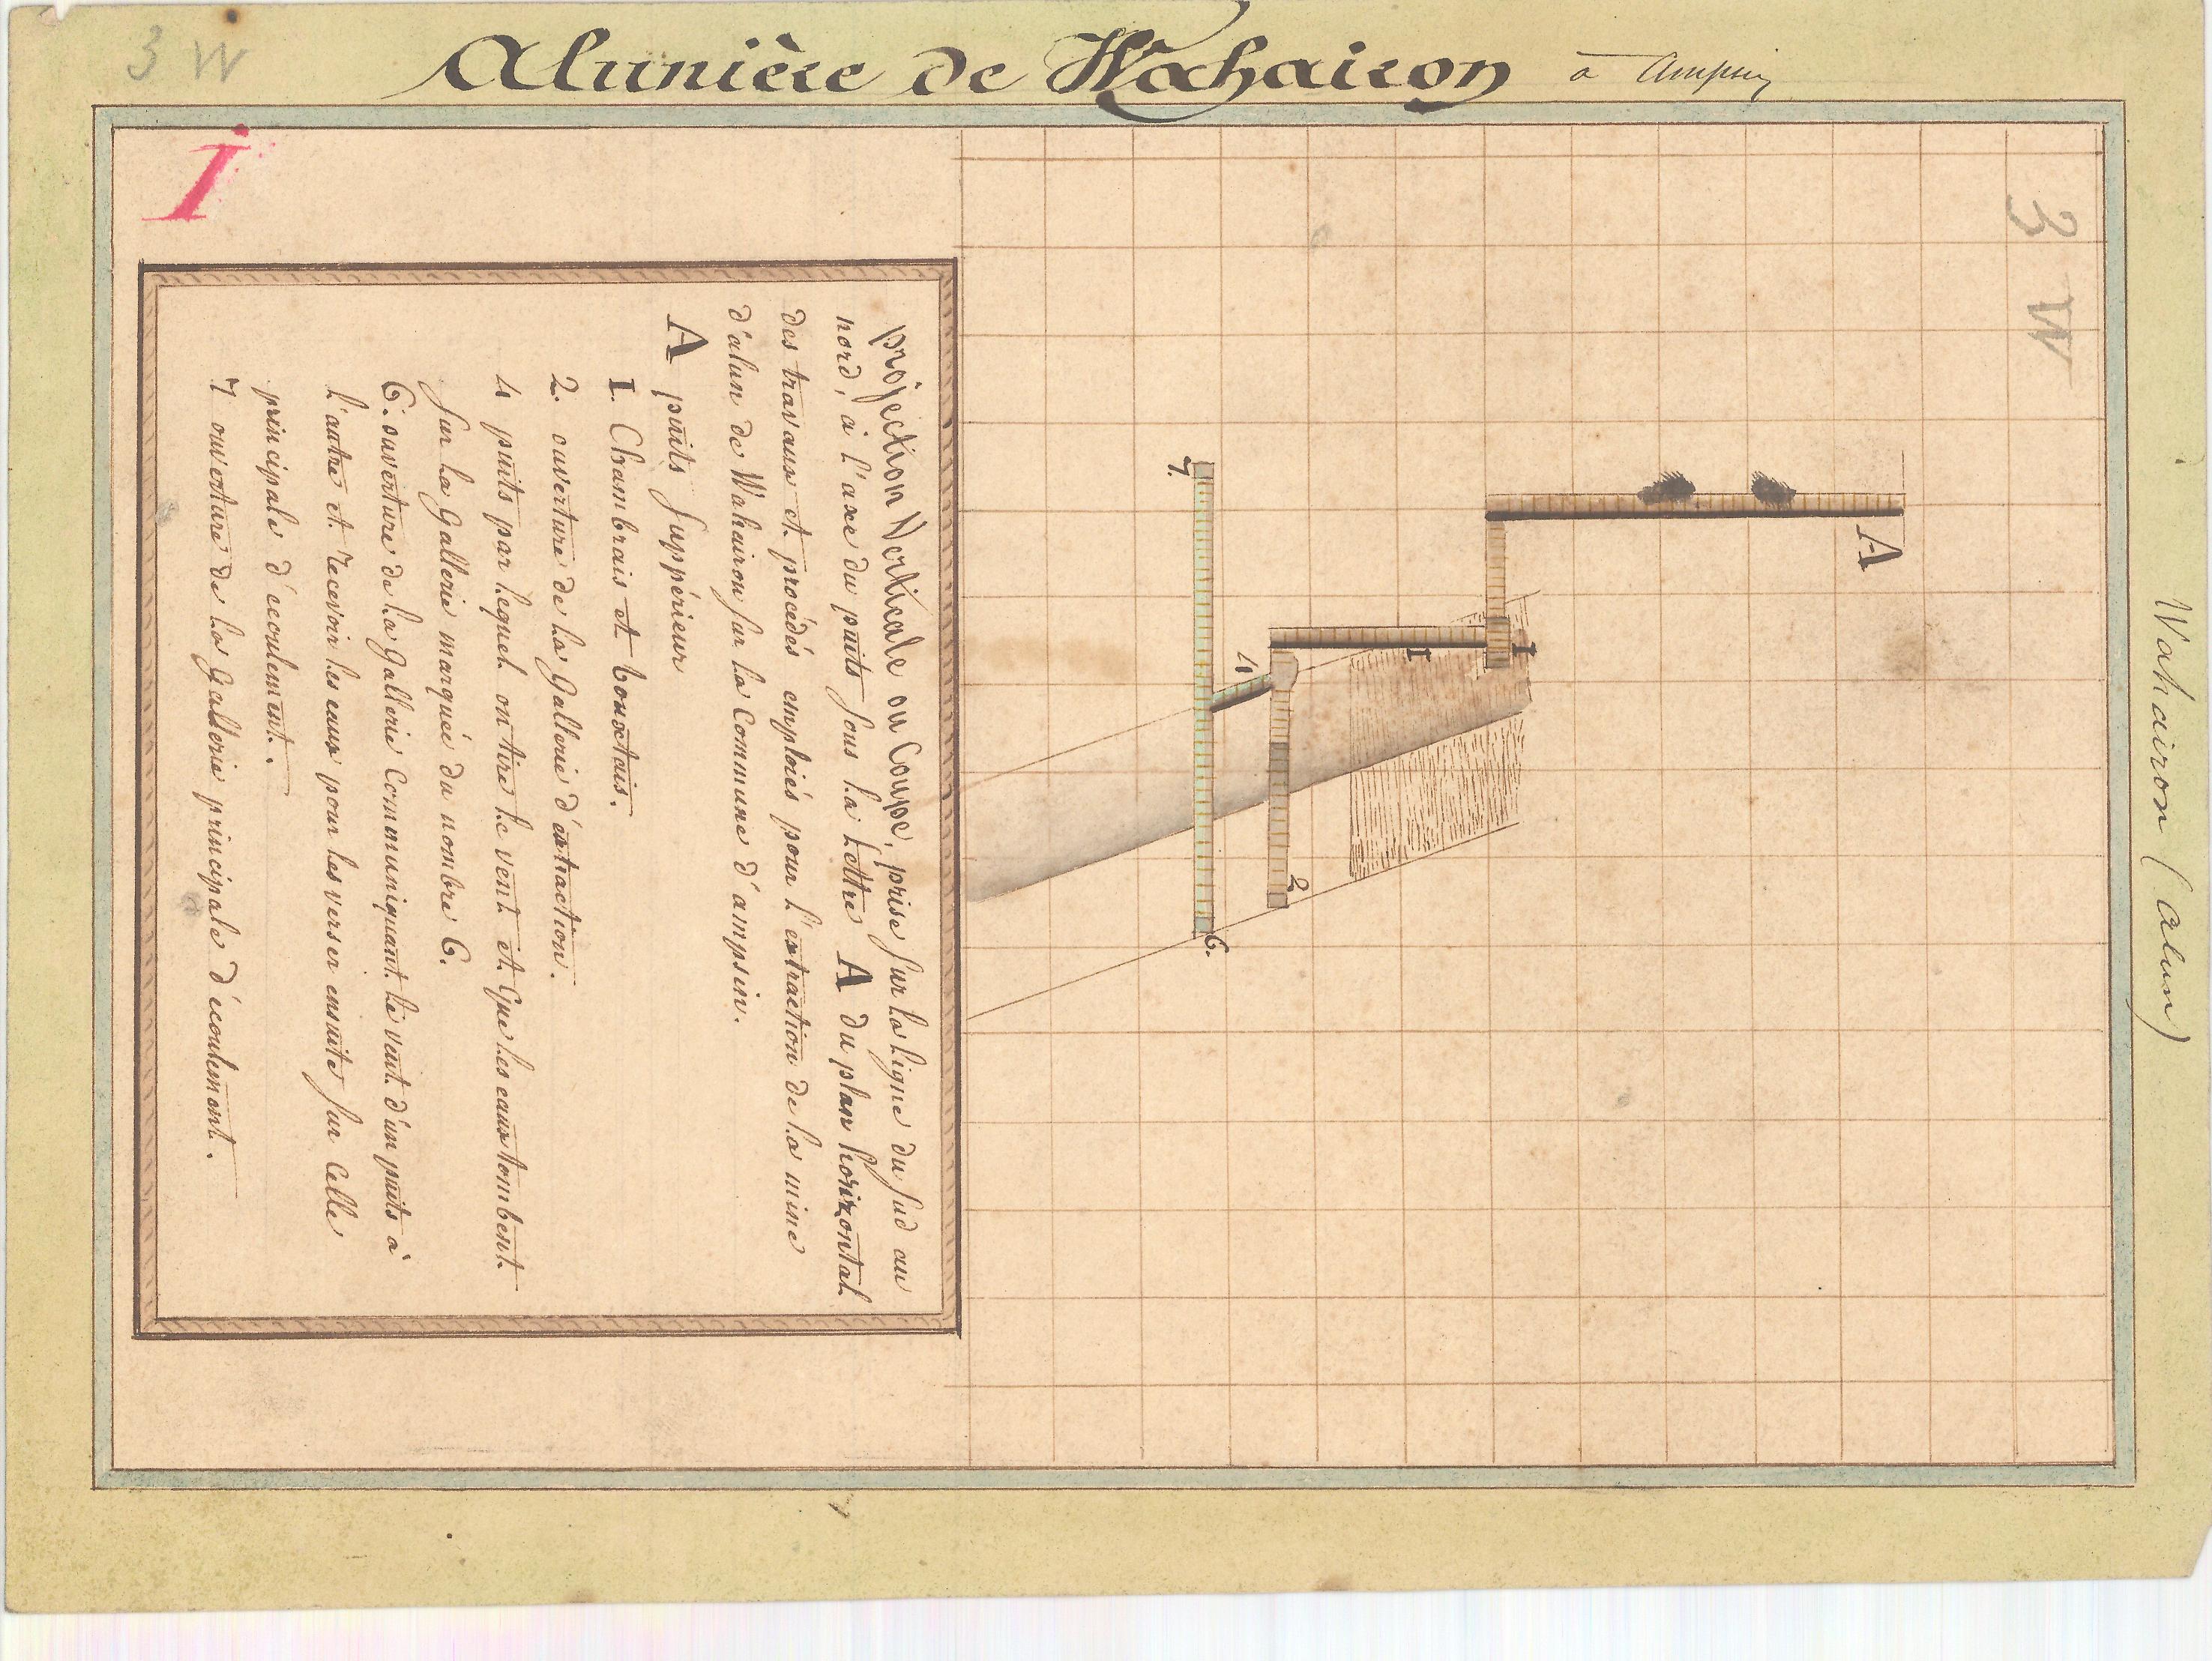 3 W
Alunière de Wahairon à Ampsin
I
3 W
Wahairon (alun)
A
I
I
4
7.
2
6.
projection Verticale ou Coupe, prise sur la ligne du sud au
nord, à l'axe du puits sous la lettre A du plan horizontal
des travaux et procédés emploiés pour l'extraction de la mine
d'alun de Wahairon sur la Commune d'ampsin.
A puits suppérieur
1. Chambrais et bouxtais.
2. ouverture de la Gallerie d'extraction.
4 puits par lequel on tire le vent et que les eaux tombent
sur la Gallerie marquée du nombre 6.
6. ouverture de la Gallerie Communiquant le vent d'un puits à
l'autre et recevoir les eaux pour les verser ensuite sur celle
principale d'écoulement.
7 ouverture de la Gallerie principale d'écoulement.